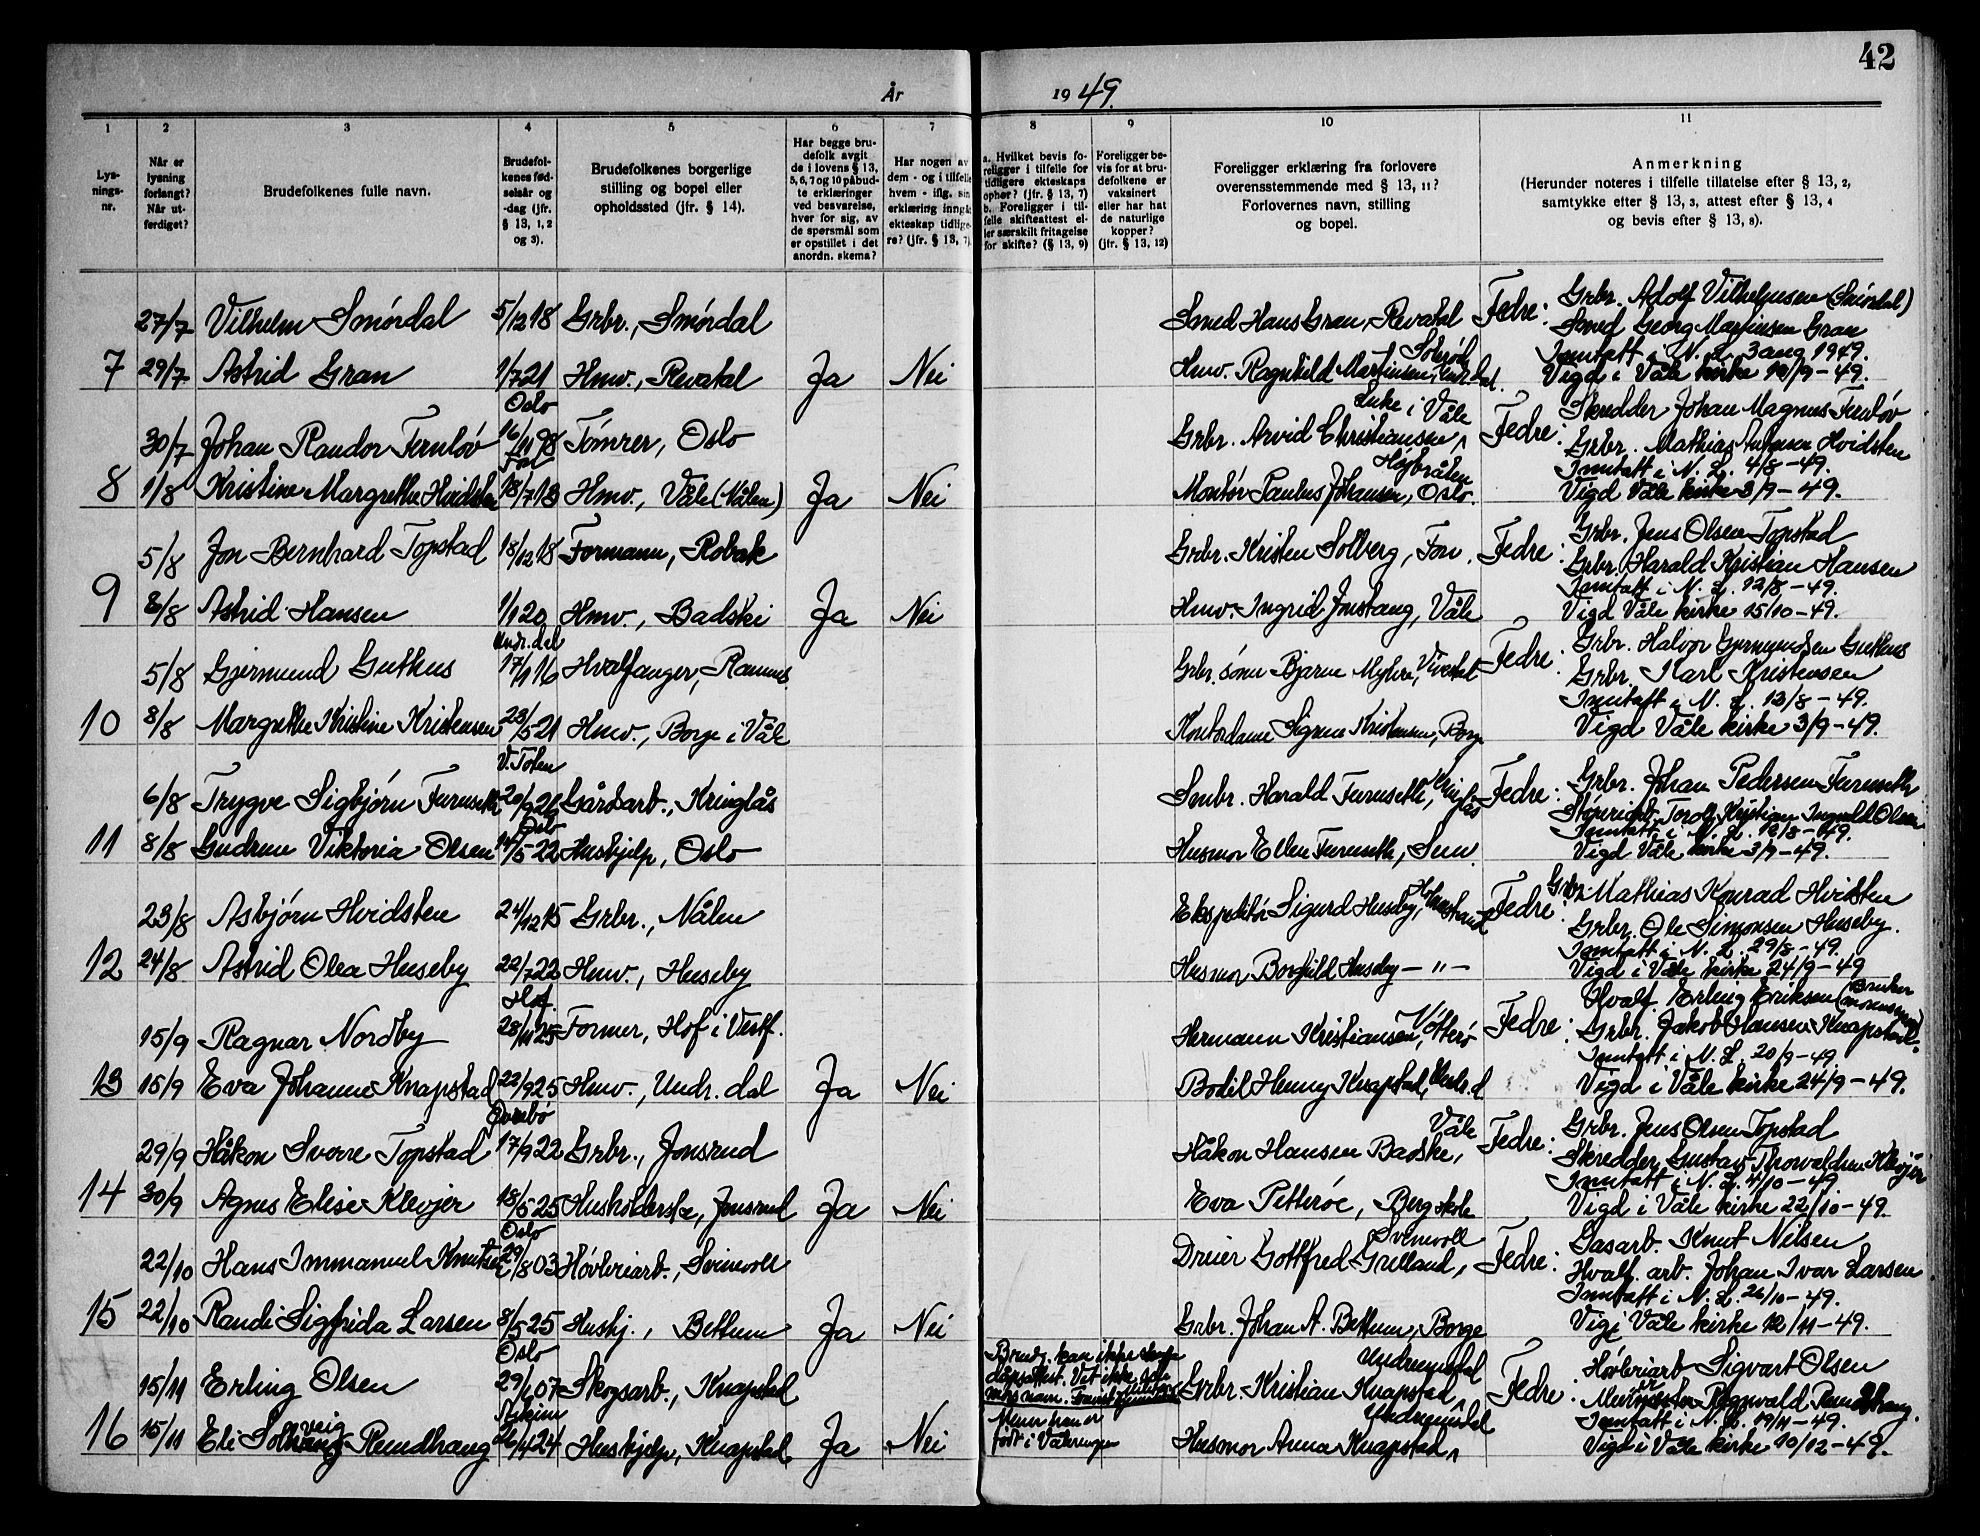 42
År 1949.
1 2 3 4 5 6 7 8 9 10 11
Lysnings-nr.
Når er lysning forlangt? Når utferdiget?
Brudefolkenes fulle navn.
Brudefolkenes fødselsår og -dag (jfr. § 13, 1, 2 og 3).
Brudefolkenes borgerlige stilling og bopel eller opholdssted (jfr. § 14).
Har begge brudefolk avgit de i lovens § 13, 5, 6, 7 og 10 påbudte erklæringer ved besvarelse, hver for sig, av de spørsmål som er opstillet i det anordn. skema?
Har nogen av dem - og i tilfelle hvem - iflg. sin erklæring inngått ekteskap tidligere? (jfr. § 13, 7).
a. Hvilket bevis foreligger i tilfelle for tidligere ekteskaps ophør? (jfr. § 13, 7) b. Foreligger i tilfelle skifteattest eller særskilt fritagelse for skifte? (§ 13, 9)
Foreligger bevis for at brudefolkene er vaksinert eller har hat de naturlige kopper? (jfr. § 13, 12)
Foreligger erklæring fra forlovere overensstemmende med § 13, 11? Forlovernes navn, stilling og bopel.
Anmerkning (Herunder noteres i tilfelle tillatelse efter § 13, 2, samtykke efter § 13, 3, attest efter § 13, 4 og bevis efter § 13, 8).
27/7 Vilhelm Smørdal 5/12 18 Grbr., Smørdal Smed Hans Gran, Revatal Fedre: Grbr. Adolf Vilhelmsen (Smørdal)
Smed Georg Martinsen Gran
7 29/7 Astrid Gran 1/7 21 Hmv., Revatal Ja Nei Hmv. Ragnhild Martinsen, Solerød Undr.dal. Inntatt i N. L. 3 aug 1949.
Vigd i Våle kirke 10/9-49.
30/7 Johan Randor Fernløv Oslo 16/11 98 Tømrer, Oslo Grbr. Arvid Christiansen, Luke i Våle Fedre: Skredder Johan Magnus Fernløv
Grbr. Mathias Antonsen Hvidsten
8 1/8 Kristine Margrethe Hvidsten Fon 18/7 13 Hmv., Våle (Nålen) Ja Nei Montør Paulus Johansen, Høybråten Oslo. Inntatt i N. L. 4/8-49.
Vigd Våle kirke 3/9-49.
5/8 Jon Bernhard Topstad 18/12 18 Formann, Robak Grbr. Kristen Solberg, Fon. Fedre: Grbr. Jens Olsen Topstad
Grbr. Harald Kristian Hansen
9 8/8 Astrid Hansen 1/1 20 Hmv., Badski Ja Nei Hmv. Ingrid Jonstang, Våle Inntatt i N. L. 12/8-49.
Vigd Våle kirke 15/10-49.
5/8 Gjermund Guthus Undr.dal 17/1 16 Hvalfanger, Ramnes. Grbr. sønn Bjarne Myhre, Vivestad Fedre: Grbr. Halvor Gjermundsen Guthus
Grbr. Karl Kristensen
10 8/8 Margrethe Kristine Kristensen 23/5 21 Hmv., Borge i Våle Kontordame Sigrun Kristensen, Borge Inntatt i N. L. 13/8-49.
Vigd Våle kirke 3/9-49.
6/8 Trygve Sigbjørn Furuseth V. Toten 20/9 26 Gårdsarb., Kringlås Småbr. Harald Furuseth, Kringlås Fedre: Grbr. Johan Pedersen Furuseth
Støperiarb. Torolf Kristian Ingvald Olsen
11 8/8 Gudrun Viktoria Olsen Oslo 14/5-22 Hushjelp, Oslo Husmor Ellen Furuseth, Sem. Inntatt i N. L. 12/8-49.
Vigd Våle kirke 3/9-49.
23/8 Asbjørn Hvidsten 24/12 15 Grbr., Nålen Ekspeditør Sigurd Huseby, Holmestrand Fedre: Grbr. Mathias Konrad Hvidsten
Grbr. Ole Simonsen Huseby.
12 24/8 Astrid Olea Huseby 22/7 22 Hmv., Huseby Husmor Borghild Huseby - " - Inntatt i N. L. 29/8-49.
Vigd i Våle kirke 24/9-49
15/9 Ragnar Nordby Hof 28/11 25 Former, Hof i Vestf. Hermann Kristiansen, Nøtterø Fedre: Hvalf. Erling Eriksen (Bruker morsnavn)
Grbr. Jakob Hansen Knapstad.
13 15/9 Eva Johanne Knapstad 22/9 25 Hmv., Undr. dal Ja Nei Bodil Henny Knapstad, Undr.d. Inntatt i N. L. 20/9-49.
Vigd i Våle kirke 24/9-49.
29/9 Håkon Sverre Topstad 17/9 22 Grbr., Jonsrud Håkon Hansen Badske, Våle Fedre: Grbr. Jens Olsen Topstad
Skredder Gustav Thorvaldsen Klevjer
14 30/9 Agnes Elise Klevjer Øvrebø 18/5 25 Husholderske, Jonsrud Ja Nei Eva Petterøe, Berg skole Inntatt i N. L. 4/10-49
Vigd i Våle kirke 22/10-49.
22/10 Hans Immanuel Knutsen Oslo 29/8 03 Høvleriarb., Svinevoll Dreier Gottfred Grelland, Svinevoll Fedre: Gasarb. Knut Nilsen
Hvalf. arb. Johan Ivar Larsen
15 22/10 Randi Sigfrida Larsen 8/5 25 Hushj., Bettum Ja Nei Grbr. Johan A. Bettum, Borge Inntatt i N. L. 26/10-49.
Vigi Våle kirke 12/11-49.
15/11 Erling Olsen Oslo 29/1 07 Skogsarb., Knapstad Brudg. kan ikke dåpsattest. Vet ikke mors navn. Grbr. Kristian Knapstad, Undrumsdal Fedre: Høvleriarb Sigvart Olsen
Ragnvald Rundhaug.
16 15/11 Eli Solveig Rundhaug Askim 26/4 24 Hushjelp, Knapstad Ja Nei Mener han er født i Vålerengen Husmor Anna Knapstad, Undrumsdal Inntatt i N. L. 19/11-49.
Vigd i Våle kirke 10/12-49.